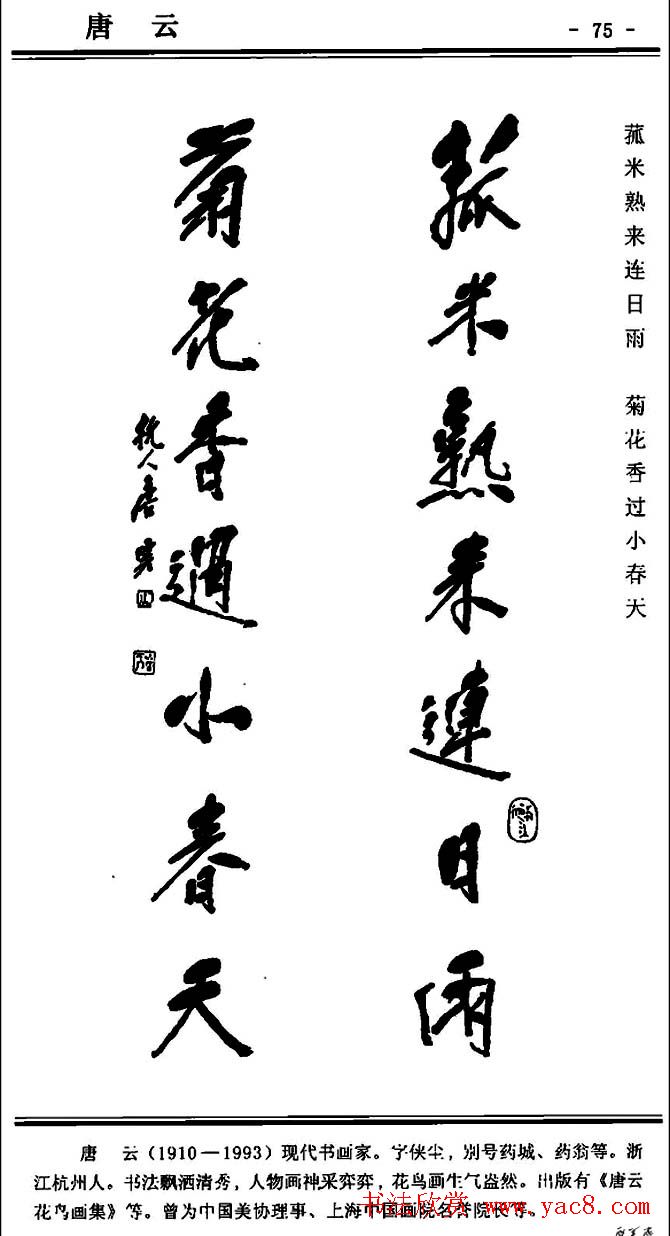 唐云
- 75 -
菰米熟来连日雨 菊花香过小春天
菰米熟来連日雨
菊花香過小春天
杭人唐雲
唐 云(1910—1993)现代书画家。字侠尘,别号药城、药翁等。浙
江杭州人。书法飘洒清秀,人物画神采弈弈,花鸟画生气盎然。出版有《唐云
花鸟画集》等。曾为中国美协理事、上海中国画院名誉院长等。
书法欣赏 www.yac8.com